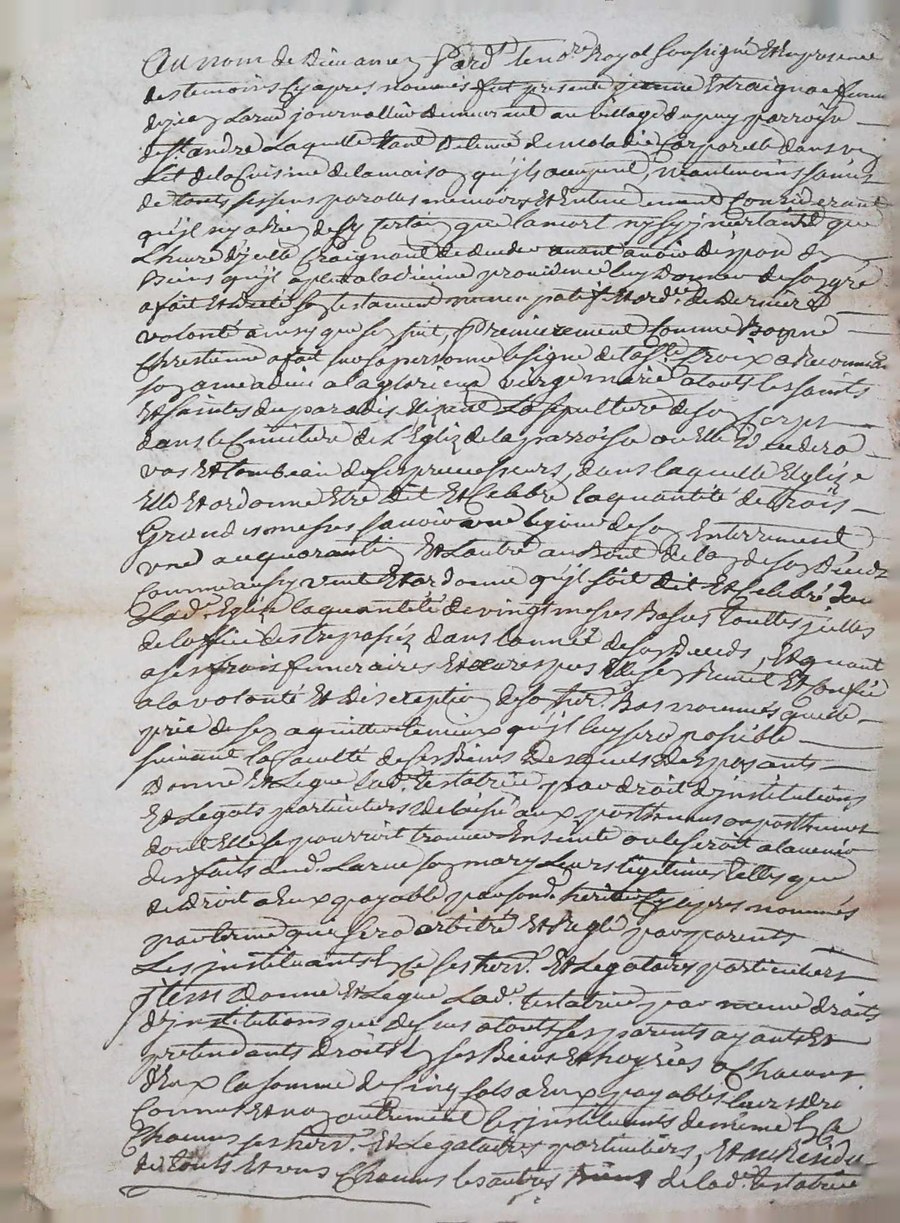 Au nom de Dieu amen Pard.t le no.re Royal Soussigné Et en presence
des temoins cy apres nommés fut presente Estraignac femme
de jean Larue journallier demeurant au village du puy parroisse
de St. andre Laquelle Etant detenue de maladie Corporelle dans un
Lit de la Cuisine de la maison qu'jls occupent, neantmoins saine
de touts ses sens parolles memoire Et Entendement Considerant
qu'jl ny a Rien de sy Certain que la mort ny sy jncertaine que
L'heure d'jcelle Craignant de deceder avant avoir dispozé des
Biens qu'jl a plu a la divine providence luy donner de son gré
a fait Et dicté son testament nuncupatif Et ord.ce de derniere
volonté ainsy que sen suit, Premierement Comme Bonne
Chrestienne a fait sur sa personne le signe de la Ste. Croix a Recommandé
son ame a dieu a la glorieuze vierge marie a touts les saints
Et saintes du paradis Elizant La sepulture de son Corps
dans le Cimitiere de L'Eglize de la parroisse ou Elle decedera
vas Et tombeau de ses predecesseurs, dans laquelle Eglize
Elle Et ordonne Etre dit Et Celebré la quantité de trois
Grandes messes savoir une le jour de son Enterrement
une au quarantin Et L'autre au Bout de lan de son Deceds
Comme aussy veut Et ordonne qu'jl soit dit Et Celebré dans
Lad.e Eglize la quantité de vingt messes Basses touttes jcelles
de loffice des trepassés dans lannée de son Deceds, Et quant
a ses frais funeraires Et aures pies Elle sen Remet Et Confie
a la volonté Et discreption de son her. Bas nommés quelle
prie de sen aquitter le mieux qu'jl luy sera possible
suivant la faculté de ses Biens Desquels Dispozant
Donne Et Legue lad.e testatrice par droit d'jnstitutions
Et Legats particuliers delaisse aux posthumes ou posthumes
dont Elle se pourroit trouver Enceinte ou le seroit a lavenir
des faits dud. Larue son mary Leurs legitimes telles que
de droit a Eux payable par sond. heritier cy apres nommés
par terme que sera arbitré Et Reglé par parents
Les jnstituants En Ce ses her. Et Legataires particuliers
jtem donne Et Legue Lad.e testatrice par meme droits
d'jnstitutions que dessus a touts ses parents ayants Et
pretendants droits En ses Biens Et hoyries a Chacun
d'Eux la somme de Cinq sols a Eux payables
Comme Et non autrement les jnstituants de meme En Ce
Chacuns ses her. Et Legataires particuliers, Et au Residu
de touts Et uns Chacuns les autres Biens de lad.e testatrice